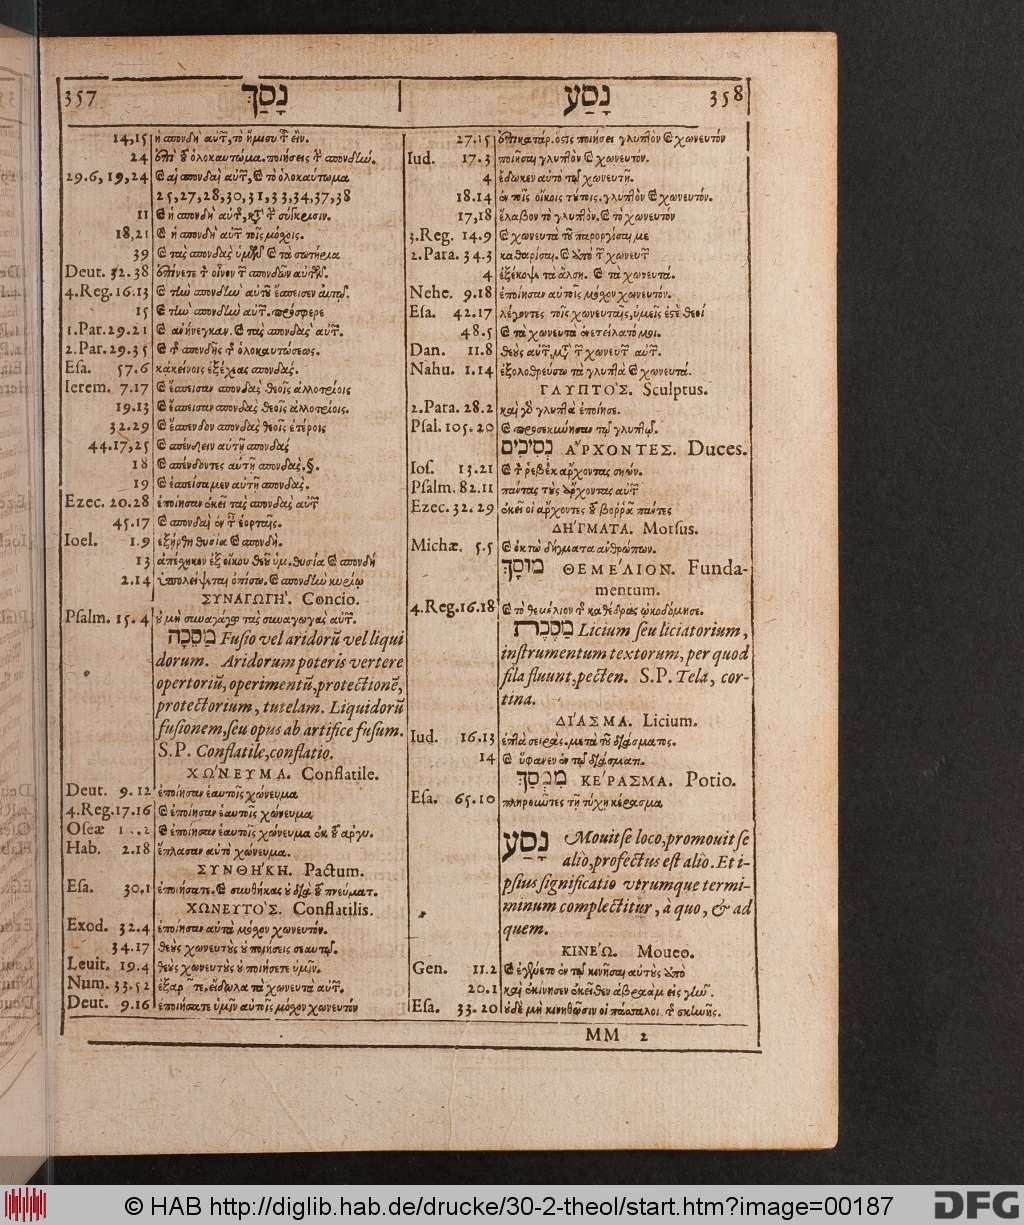 357 נָסַךְ
14,15 ἡ σπονδὴ αὐτ, τὸ ἥμισυ τ εἲν.
24 ποιήσεις τ σπονδίω.
29.6, 19, 24 καὶ αἱ σπονδαὶ αὐτ, καὶ τὸ ὁλοκαύτωμα
25,27,28,30,31,33,34,37,38
11 καὶ ἡ σπονδὴ αὐτ, κτ τ σύγκρισιν.
18,21 καὶ ἡ σπονδὴ αὐτ τοῖς μόχοις.
39 καὶ τὰς σπονδὰς ὑμῶν καὶ τὰ σωτήρια
Deut. 32.38 τ οἶνον τ σπονδῶν αὐτῶν.
4.Reg. 16.13 καὶ τίω σπονδίω αὐτοῦ ἔσπεισεν
15 καὶ τίω σπονδίω αὐτ. πρόσφερε
1.Par. 29.21 καὶ ἀνήνεγκαν. καὶ τὰς σπονδὰς αὐτ.
2.Par. 29.35 καὶ τ σπονδῆς τ ὁλοκαυτώσεως.
Esa. 57.6 κἀκείνοις ἐξέχεας σπονδάς.
Ierem. 7.17 καὶ ἔσπεισαν σπονδὰς θεοῖς ἀλλοτρίοις
19.13 καὶ ἔσπεισαν σπονδὰς θεοῖς ἀλλοτρίοις.
32.29 καὶ ἔσπενδον σπονδὰς θεοῖς ἑτέροις
44.17,25 καὶ σπένδειν αὐτῇ σπονδάς
18 καὶ σπένδοντες αὐτῇ σπονδάς. §.
19 καὶ ἐσπείσαμεν αὐτῇ σπονδάς.
Ezec. 20.28 ἐποίησαν ἐκεῖ τὰς σπονδὰς αὐτ
45.17 καὶ σπονδαὶ ἐν τ ἑορταῖς.
Ioel. 1.9 ἐξήρθη θυσία καὶ σπονδή.
13 ἀπέχηκεν ἐξ οἴκου θεοῦ ὑμ. θυσία καὶ σπονδή
2.14 ὑπολείψεται ὀπίσω. καὶ σπονδίω κυρίῳ
ΣΥΝΑΓΩΓΗ'. Concio.
Psalm. 15.4 οὐ μὴ συναγάγω τὰς συναγωγὰς αὐτ.
מַסֵּכָה Fusio vel aridorū vel liqui
dorum. Aridorum poteris vertere
opertoriū, operimentū, protectionē,
protectorium, tutelam. Liquidorū
fusionem, seu opus ab artifice fusum.
S.P. Conflatile, conflatio.
ΧΩ'ΝΕΥΜΑ. Conflatile.
Deut. 9.12 ἐποίησαν ἑαυτοῖς χώνευμα
4.Reg. 17.16 καὶ ἐποίησαν ἑαυτοῖς χώνευμα
Oseæ καὶ ἐποίησαν ἑαυτοῖς χώνευμα ἐκ τοῦ ἀργυ.
Hab. 2.18 ἔπλασαν αὐτὸ χώνευμα.
ΣΥΝΘΗ'ΚΗ. Pactum.
Esa. 30.1 ἐποιήσατε. καὶ συνθήκας οὐ διὰ τοῦ πνεύματ.
ΧΩΝΕΥΤΟ'Σ. Conflatilis.
Exod. 32.4 ἐποίησαν αὐτὰ μόχον χωνευτόν.
34.17 θεοὺς χωνευτοὺς οὐ ποιήσεις σεαυτῷ.
Leuit. 19.4 θεοὺς χωνευτοὺς οὐ ποιήσετε ὑμῖν.
Num. 33.52 εἴδωλα τὰ χωνευτὰ αὐτ.
Deut. 9.16 ἐποιήσατε ὑμῖν αὐτοῖς μόχον χωνευτόν
נָסַע 358
27.15 ποιήσει γλυπτὸν καὶ χωνευτόν
Iud. 17.3 ποιῆσαι γλυπτὸν καὶ χωνευτόν.
4 ἔδωκεν αὐτὸ τῷ χωνευτῇ.
18.14 ἐν τοῖς οἴκοις τούτοις. γλυπτὸν καὶ χωνευτόν.
17,18 ἔλαβον τὸ γλυπτόν. καὶ τὸ χωνευτόν
3.Reg. 14.9 καὶ χωνευτὰ τοῦ παροργίσαι με
2.Para. 34.3 καθαρίσαι. καὶ ἀπὸ τ χωνευτ
4 ἐξέκοψε τὰ ἄλση. καὶ τὰ χωνευτά.
Nehe. 9.18 ἐποίησαν αὐτοῖς μόχον χωνευτόν.
Esa. 42.17 λέγοντες τοῖς χωνευταῖς, ὑμεῖς ἐστὲ θεοί
48.5 καὶ τὰ χωνευτὰ ἐνετείλατό μοι.
Dan. 11.8 θεοὺς αὐτ, μτ τ χωνευτ αὐτ.
Nahu. 1.14 ἐξολοθρεύσω τὰ γλυπτὰ καὶ χωνευτά.
ΓΛΥΠΤΟ'Σ. Sculptus.
2.Para. 28.2 καὶ γὸ γλυπτὰ ἐποίησε.
Psal. 105.20 καὶ προσεκύνησαν τῷ γλυπτῷ.
נְסִיכִים Α῎ΡΧΟΝΤΕΣ. Duces.
Ios. 13.21 καὶ τ ῥεβὲκ ἄρχοντας σηών.
Psalm. 82.11 πάντας τοὺς ἄρχοντας αὐτ
Ezec. 32.29 ἐκεῖ οἱ ἄρχοντες τοῦ βορρᾶ πάντες
ΔΗ'ΓΜΑΤΑ. Morsus.
Michæ. 5.5 καὶ ὀκτὼ δήγματα ἀνθρώπων.
מוּסָךְ ΘΕΜΕ'ΛΙΟΝ. Funda-
mentum.
4.Reg. 16.18 καὶ τὸ θεμέλιον τ καθέδρας ᾠκοδόμησε.
מַסֶּכֶת Licium seu liciatorium,
instrumentum textorum, per quod
fila fluunt, pecten. S.P. Tela, cor-
tina.
ΔΙ'ΑΣΜΑ. Licium.
Iud. 16.13 ἑπτὰ σειράς. μετὰ τοῦ διάσματος.
14 καὶ ὕφανεν ἐν τῷ διάσματι.
מִמְסָךְ ΚΕ'ΡΑΣΜΑ. Potio.
Esa. 65.10 πληροῦντες τῇ τύχῃ κέρασμα
נָסַע Mouit se loco, promouit se
aliò, profectus est alio. Et i-
psius significatio vtrumque termi-
minum complectitur, à quo, & ad
quem.
ΚΙΝΕ'Ω. Moueo.
Gen. 11.2 καὶ ἐγένετο ἐν τῷ κινῆσαι αὐτοὺς ἀπὸ
20.1 καὶ ἐκίνησεν ἐκεῖθεν ἀβραὰμ εἰς γῆν.
Esa. 33.20 οὐδὲ μὴ κινηθῶσιν οἱ πάσσαλοι τ σκηνῆς.
MM 2
© HAB http://diglib.hab.de/drucke/30-2-theol/start.htm?image=00187
DFG